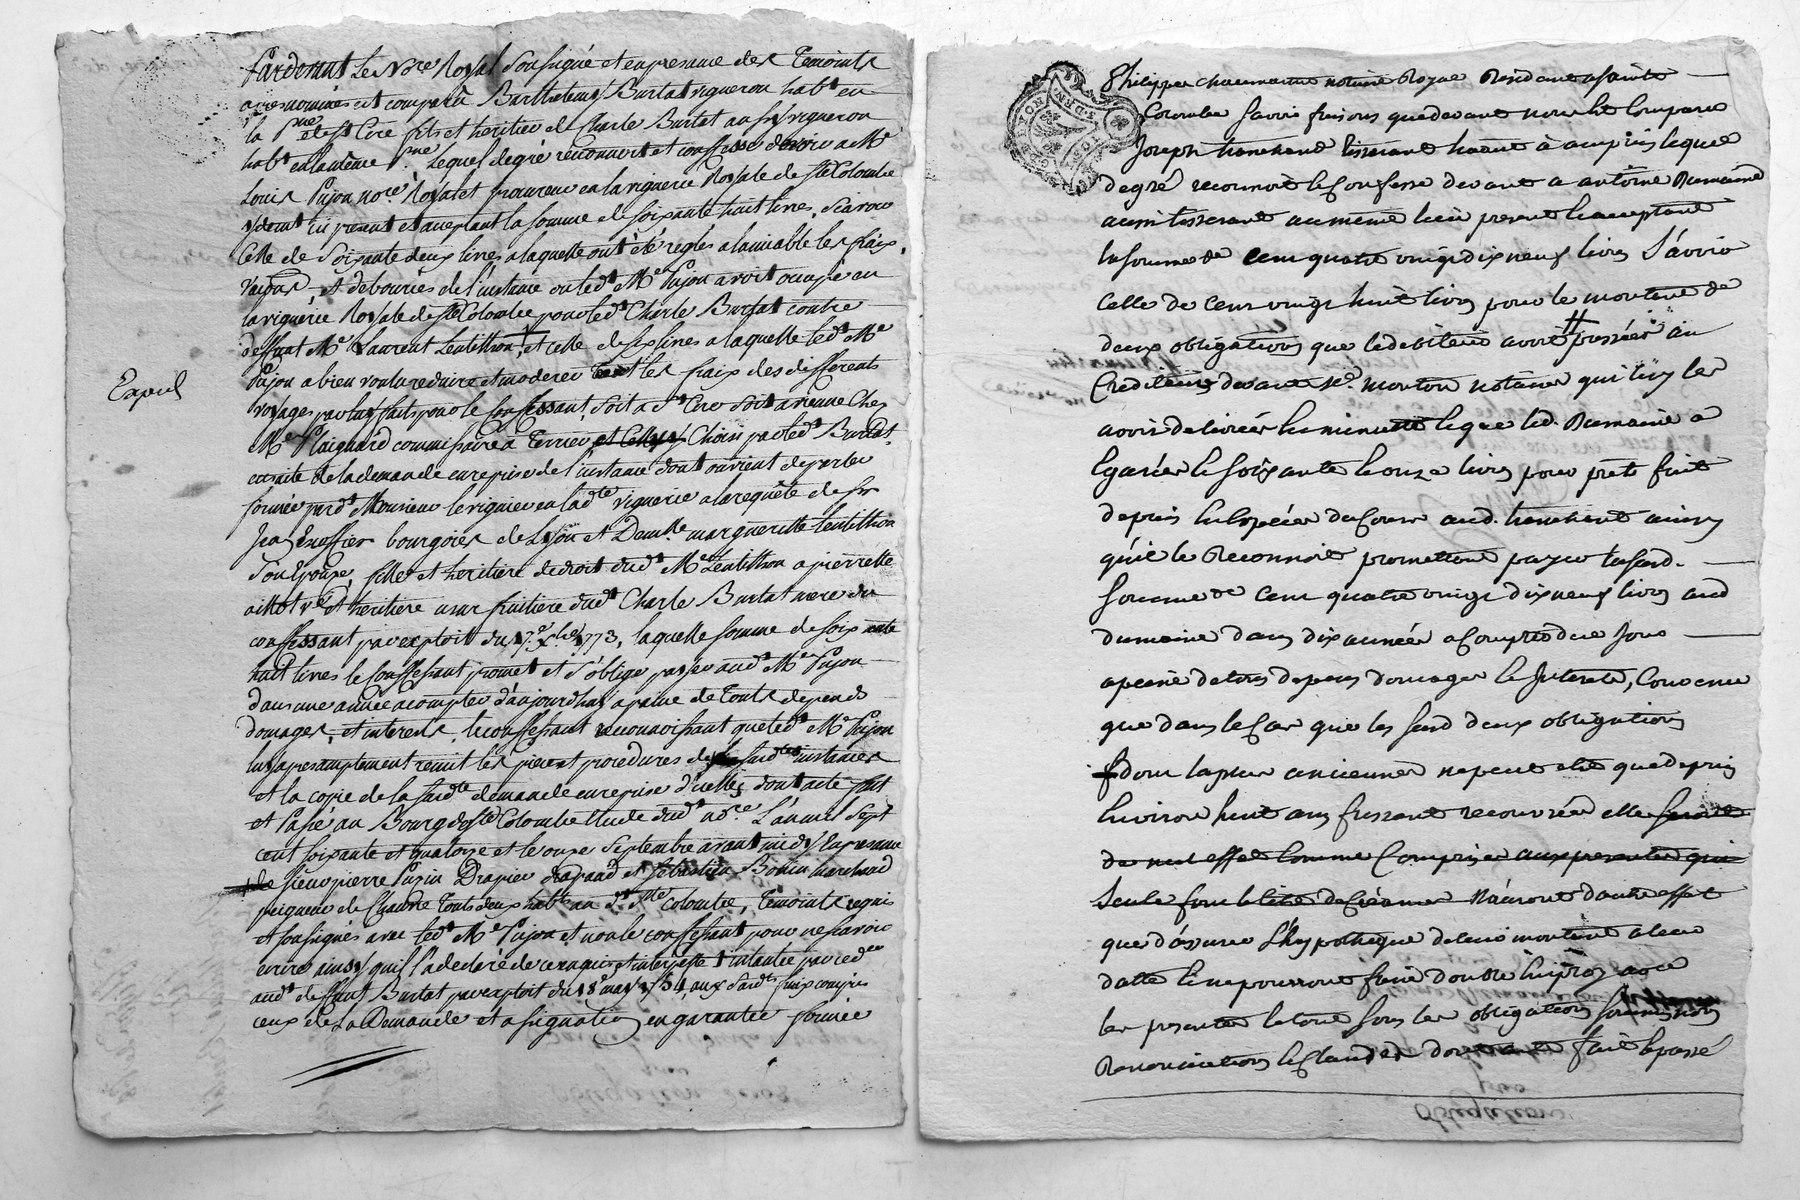 Pardevant Le Nore Royal soussigné et en presance des Temoints
apres nommés est comparû Barthelemy Burtat vigneron habt en
la pnne de st Cire fils et heritier de Charle Burtat aussy vigneron
habt en la même pnne Lequel de gré reconnoit et confesse devoir a Me
Louis Pujon nore Royal et procureur en la viguerie Royale de Ste Colombe
y demt icy present et aceptant la somme de soixante huit livres, sçavoir
Celle de soixante deux livres a laquelle ont été reglés a lamiable les fraix,
et deboursés de l'instance ou ledt Me Pujon avoit ocupé en
la viguerie Royale de Ste Colombe pour ledt Charle Burtat contre
deffunt Me Laurent Lentillhon, et celle de six livres a laquelle ledt Me
Pujon a bien voulu reduire et moderer tout les fraix des differents
voyages par luy faits pour le Confessant, soit a st Cire soit a vienne Chez
Me Plaignard commissaire a Terrier et Celluy Choisi par ledt Burtat
ensuite de la demande en reprise de l'instance dont on vient de parler
formée pardt Monsieur le viguier en lad.te viguerie a la requête de sr
bourgois de Lyon et Demlle margueritte lentillhon
son Epouse, fille et heritiere de droit dudt Me Lentillhon a pierrette
ve et heritiere usufruitiere dudt Charle Burtat mere du
confessant par exploit du 17e xbre 1773, laquelle somme de soixante
huit livres le Confessant promet et s'oblige payer audt Me Pujon
dans une année a compter d'aujourdhuy a paine de touts depends
domages, et interests, le confessant reconnoissant que ledt Me Pujon
luy a presamptement remit les pieces et procedures de la sudte instance
et la copie de la sudte demande en reprise d'icelle, dont acte fait
et Passé au Bourg de Ste Colombe Etude dudt nore. L'an mil sept
cent soixante et quatorze et le onze septembre avant midy En presance
de sieur pierre Pupin Drapier drapand et sebastien Bonin marchand
peigneur de Chanvre touts deux habts au dt Ste Colombe, Temoints requis
et soussignés avec ledt Me Pujon et non le confessant pour ne sçavoir
ecrire ainsy qu'il l'a declaré de ce enquis et interpellé
audt deffunt Burtat par exploit du 18e may 1754, aux sudts fraix compris
ceux de La Demande et assignation en garantie formée
Expedié
Philippe Chaumartin notaire Royal Residant a sainte
Colombe savoir faisons que devant nous Est Comparu
Joseph tisserant habitant à ampuis lequel
de gré reconnoit & Confesse devoir a antoine Rumaine
aussi tisserant au meme lieu present & acceptant
la somme de cent quatre vingt dix neuf livres Sçavoir
celle de cent vingt huit livres pour le montant de
deux obligations que le debiteur avoit passées au
Crediteur devant Me. mouton notaire qui luy les
avoit delivrées en minutte & que led. Rumaine a
egarées & soixante & onze livres pour prêts fait
depuis en Especes de Cours aud. ainsy
qu'il le Reconnoit promettant payer lasusd.
Somme de cent quatre vingt dix neuf livres aud
Rumaine dans dix années a Compter de ce Jour
apeine de tous depens domages & Interets, Convenu
que dans le Cas que les susd deux obligations
dont la plus ancienne ne peut etre que depuis
Environ huit ans fussent recouvrées elle seroit
de nul effet Comme Comprise aux presentes qui
seule font le titre de Creance N'auront d'autre effet
que d'assurer l'hypotheque de leur montant a leur
datte & ne pourront faire double Employ avec
les presentes le tout sous les obligations soumissions
Renonciations & Clauses dont acte fait & passé